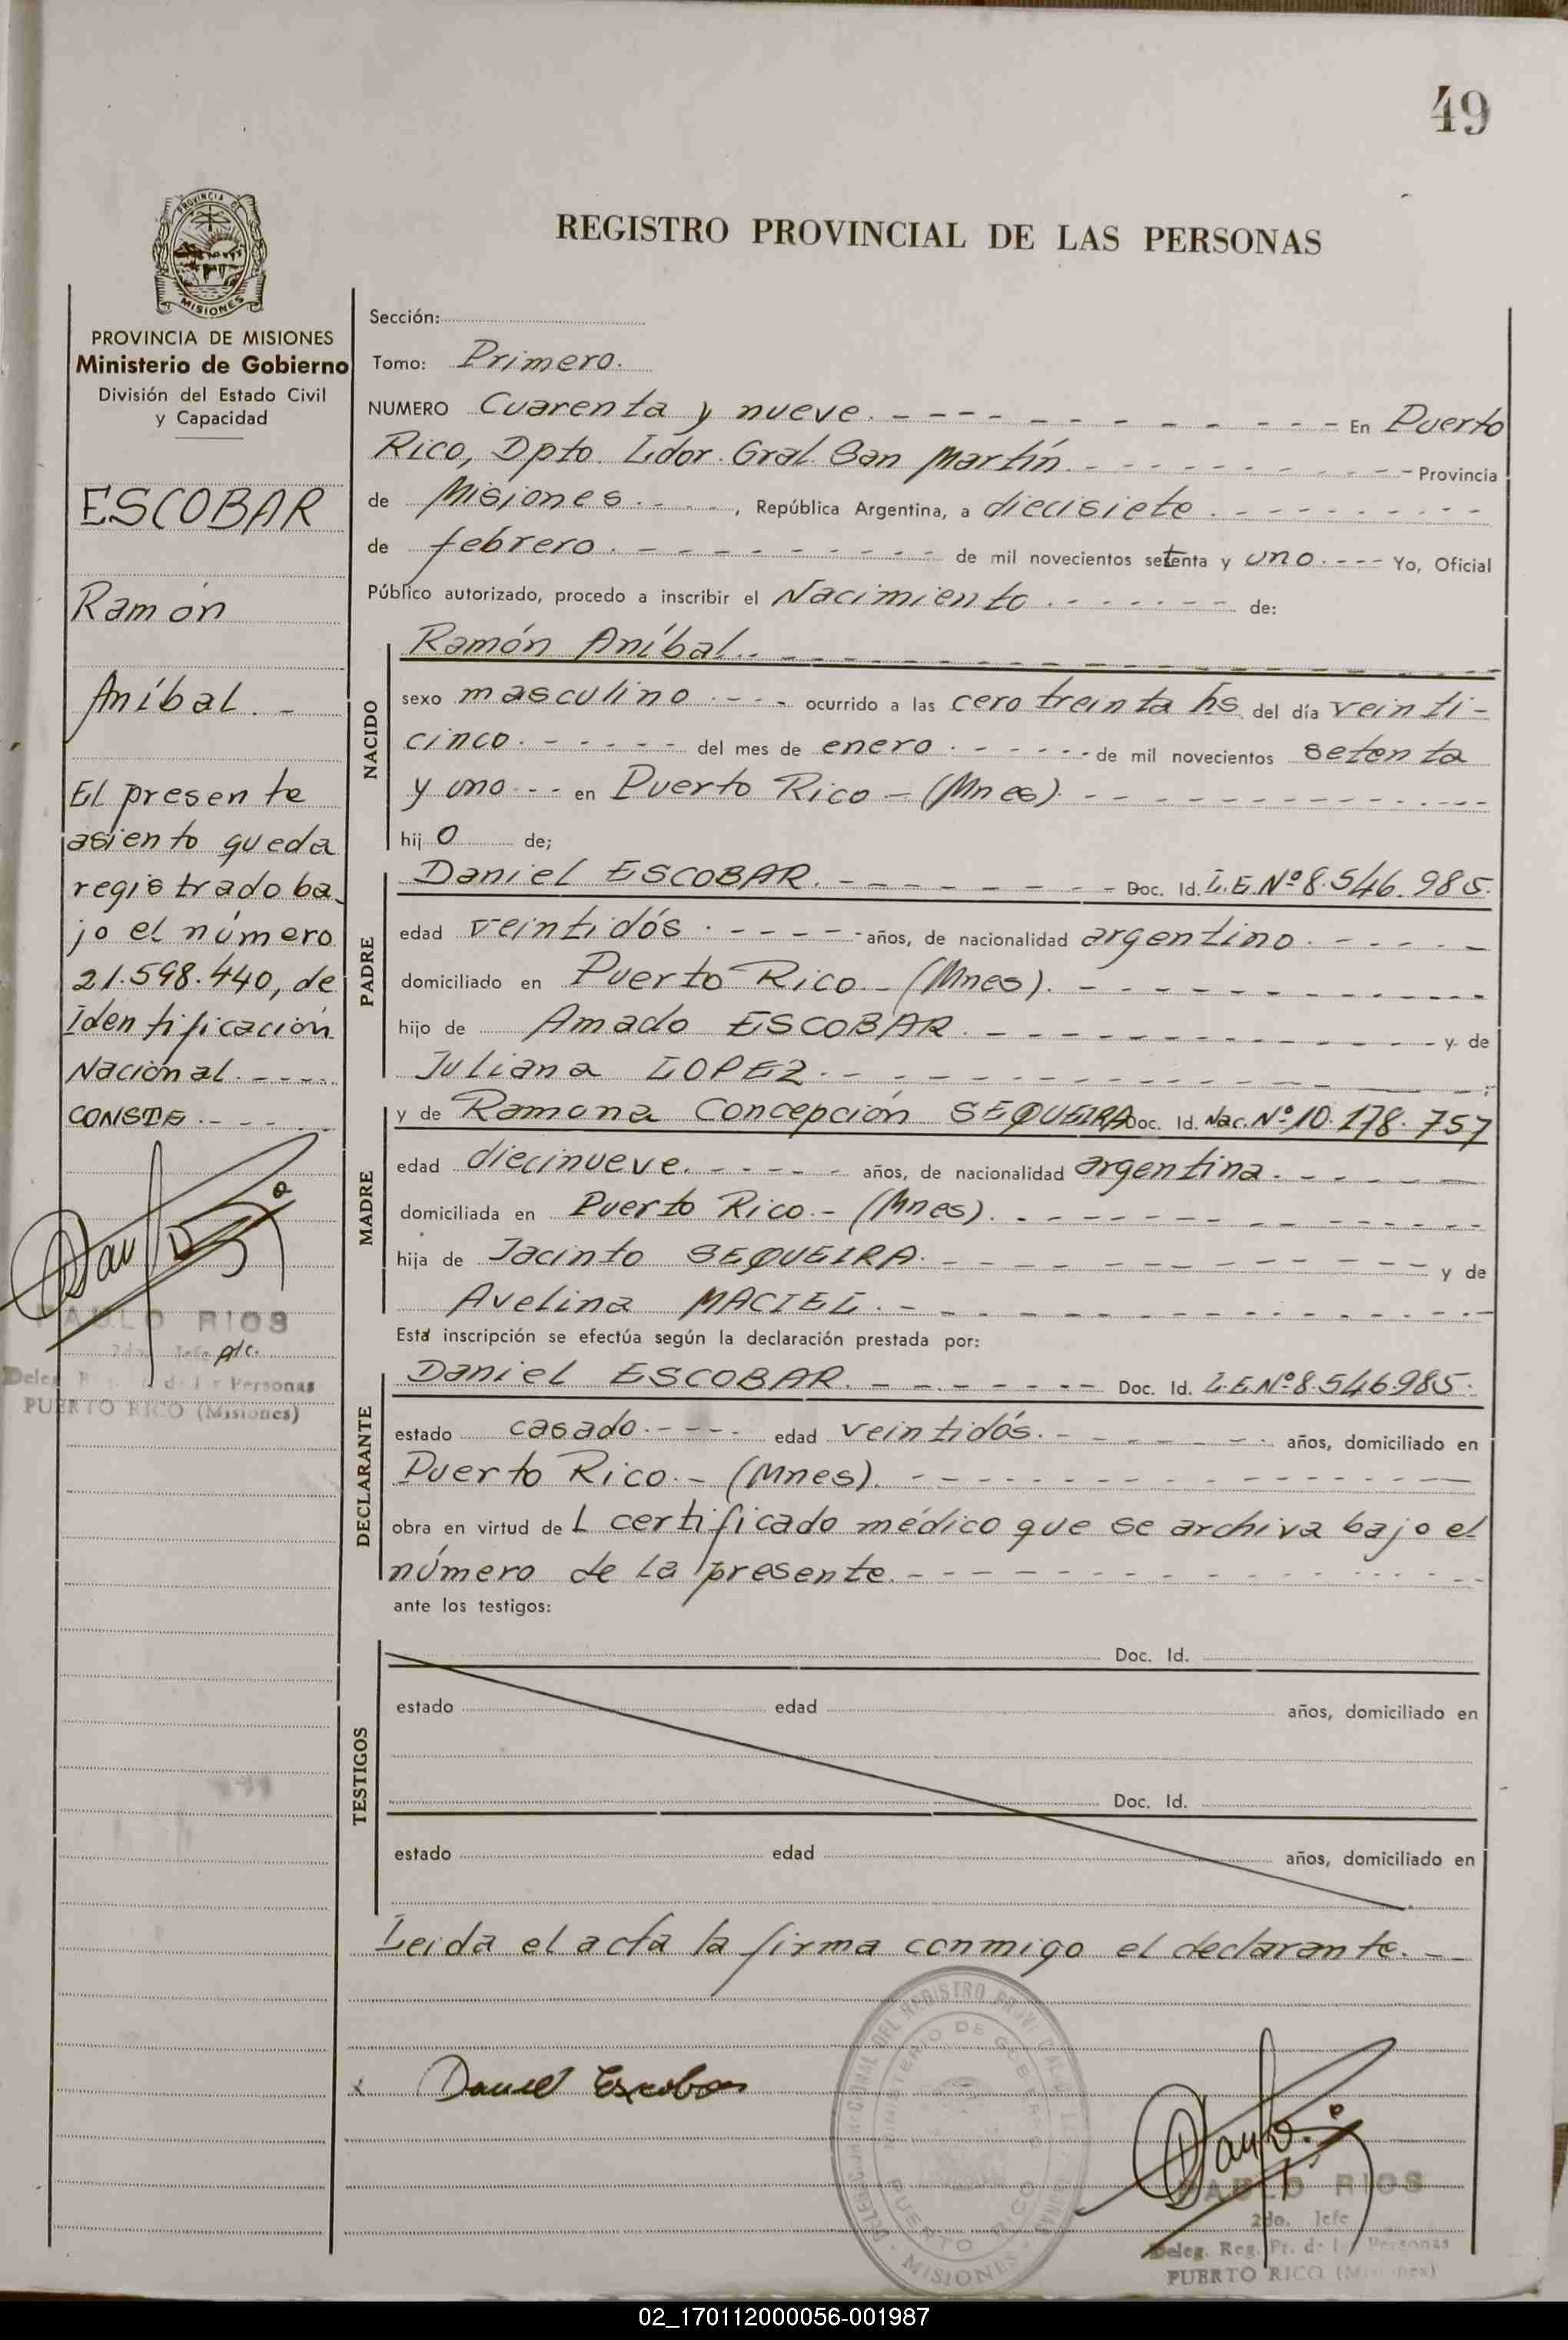 49
PROVINCIA DE
MISIONES
PROVINCIA DE MISIONES
Ministerio de Gobierno
División del Estado Civil
y Capacidad
ESCOBAR
Ramón
Aníbal. -
El presente
asiento queda
registrado ba
jo el número
21.598.440, de
Identificación
Nacional. - - - -
CONSTE. - - -
PABLO RIOS
2do. Jefe
Personas
PUERTO RICO (Misiones)
REGISTRO PROVINCIAL DE LAS PERSONAS
Sección:
Tomo: Primero.
NUMERO Cuarenta y nueve. - - - En Puerto
Rico, Dpto. Ldor. Gral. San Martín. - - - Provincia
de Misiones. - - - , República Argentina, a diecisiete. - - -
de febrero. - - - de mil novecientos setenta y uno. - - - Yo, Oficial
Público autorizado, procedo a inscribir el Nacimiento. - - - de:
NACIDO
Ramón Aníbal. - - -
sexo masculino - - - ocurrido a las cero treinta hs. del día veinti-
cinco. - - - del mes de enero. - - - de mil novecientos setenta
y uno - - - en Puerto Rico - (Mnes). - - -
hijo de;
PADRE
Daniel ESCOBAR. - - - Doc. Id. L.E.Nº 8.546.985.
edad veintidós. - - - años, de nacionalidad argentino. - - -
domiciliado en Puerto Rico - (Mnes). - - -
hijo de Amado ESCOBAR. - - - y de
Juliana LOPEZ. - - - ;
MADRE
y de Ramona Concepción SEQUEIRA Doc. Id. Nac. Nº 10.178.757
edad diecinueve. - - - años, de nacionalidad argentina. - - -
domiciliada en Puerto Rico. - (Mnes). - - -
hija de Jacinto SEQUEIRA. - - - y de
Avelina MACIEL. - - -
Está inscripción se efectúa según la declaración prestada por:
DECLARANTE
Daniel ESCOBAR. - - - Doc. Id. L.E.Nº 8.546.985.
estado casado. - - - edad veintidós. - - - años, domiciliado en
Puerto Rico. - (Mnes). - - -
obra en virtud de L certificado médico que se archiva bajo el
número de la presente. - - -
ante los testigos:
TESTIGOS
Doc. Id.
estado edad años, domiciliado en
Doc. Id.
estado edad años, domiciliado en
Leida el acta la firma conmigo el declarante. - -
x Daniel Escobar
MINISTERIO DE GOBIERNO
PUERTO RICO
- MISIONES -
PABLO RIOS
2do. Jefe
Deleg. Reg. Pr. de las Personas
PUERTO RICO (Misiones)
02_170112000056-001987